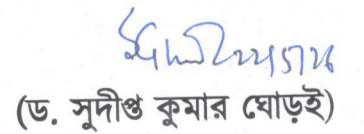 (ড. সুদীপ্ত কুমার ঘোড়ই)